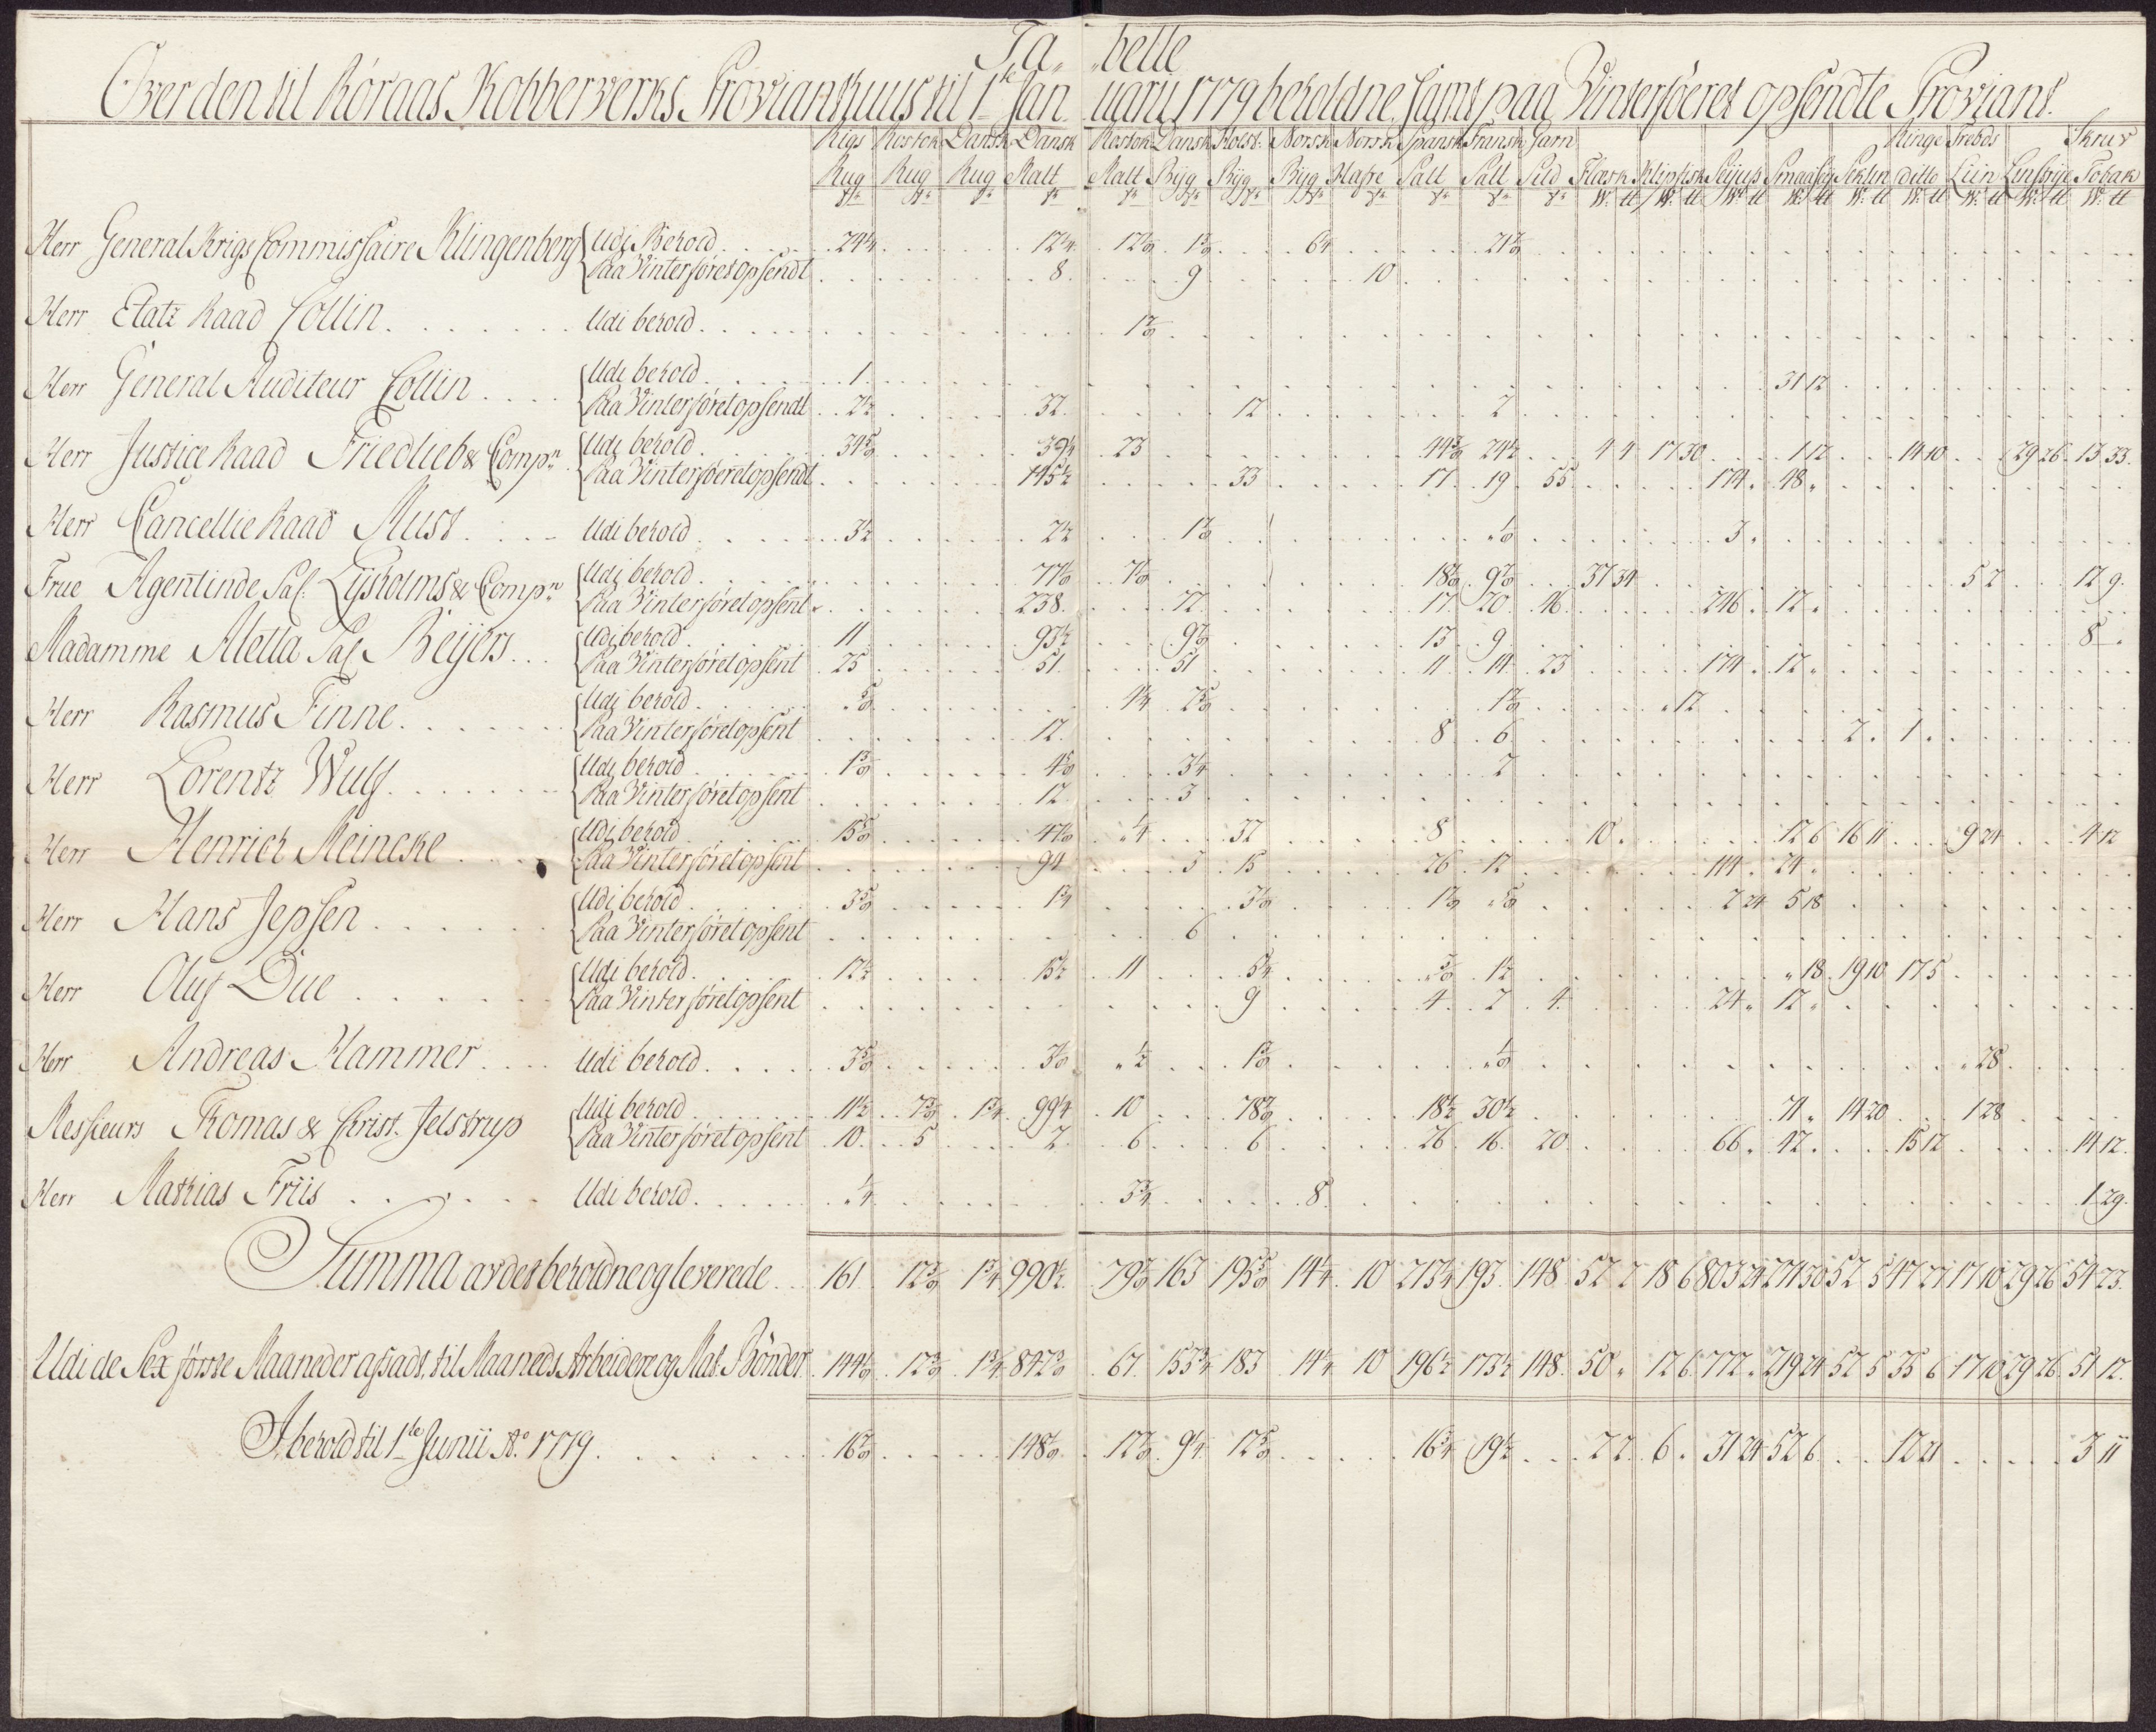 Ta„ „belle
Over den til Röraas Kobberverks Provianthuus til 1te Jan„ „uarii 1779 beholdne, samt paa Vinterføeret opsendte Proviant.
Rigs Rostok Dansk Dansk Rostok Dansk Holst: Norsk Norsk Spansk Fransk Garn Ringe Trebds Skruv
Rug Rug Rug Malt Malt Byg Byg Byg Hafre Salt Salt Sild Flæsk Klipfisk Seijus Smaasey Seklin ditto Liin Linserje Tobak
Herr General Krigs Commissaire Klingenberg Udi Behold 24¼ 12¼ 6¼
Paa Vinterføret opsendt 8 9 10
Herr Etatz Raad Collin Udi behold
Herr General Auditeur Collin Udi behold 1 31 12
Paa Vinterføret opsendt 2½ 32 12 2
Herr Justice Raad Friedlieb & Compn Udi behold 23 24½ 4 4 17 30 1 12 14 10 29 26 13 33
Paa Vinterføeret opsendt 145½ 33 17 19 55 174 „ 48 „
Herr Cancellie Raad Must Udi behold 3½ 2½ 3 „
Frue Agentinde Sal. Lysholms & Compn Udi behold 37 34 5 2 12 9
Paa Vinterføret opsent 238 72 17 20 46 246 „ 12 „
Madamme Aletta Sal. Beijers Udi behold 11 93½ 13 9 8 „
Paa Vinterføret opsent 25 51 51 11 14 23 174 „ 12 „
Herr Rasmus Finne Udi behold „ 12
Paa Vinterføret opsent 12 8 6 2 „ 1 „
Herr Lorentz Wulf Udi behold 3¼ 2
Paa Vinterføret opsent 12 3
Herr Henrich Meincke Udi behold „¼ 32 8 10 „ 12 6 16 11 9 24 4 12
Paa Vinterføret opsent 94 5 15 26 12 114 „ 24 „
Herr Hans Jepsen Udi behold 1¾ 2 24 5 18
Paa Vinterføret opsent 6
Herr Oluf Due Udi behold 12½ 15½ 11 5¼ 1½ „ 18 19 10 17 5
Paa Vinterføret opsent 9 4 2 4 24 „ 12 „
Herr Andreas Hammer Udi behold „½ „ 28
Messieurs Thomas & Christ. Jelstrup Udi behold 11½ 1¾ 99¼ 10 18½ 30½ 71 „ 14 20 1 28
Paa Vinterføret opsent 10 5 2 6 6 26 16 20 66 „ 42 „ 15 12 14 12
Herr Mathias Friis Udi behold „¼ 3¾ 8 1 29
Summa av det beholdne og leverede 161 1¾ 990½ 163 14¼ 10 213¼ 193 148 52 2 18 6 803 24 271 30 52 5 47 27 17 10 29 26 54 23
Udi de Sex første Maaneder afsadt, til Maaneds Arbeidere og Mat. Bönder 1¾ 67 153¾ 183 14¼ 10 196½ 173½ 148 50 „ 12 6 772 „ 219 24 52 5 35 6 17 10 29 26 51 12
I behold til 1te Junii Ao 1779 9¼ 16¾ 19½ 2 2 6 „ 31 24 52 6 12 21 3 11